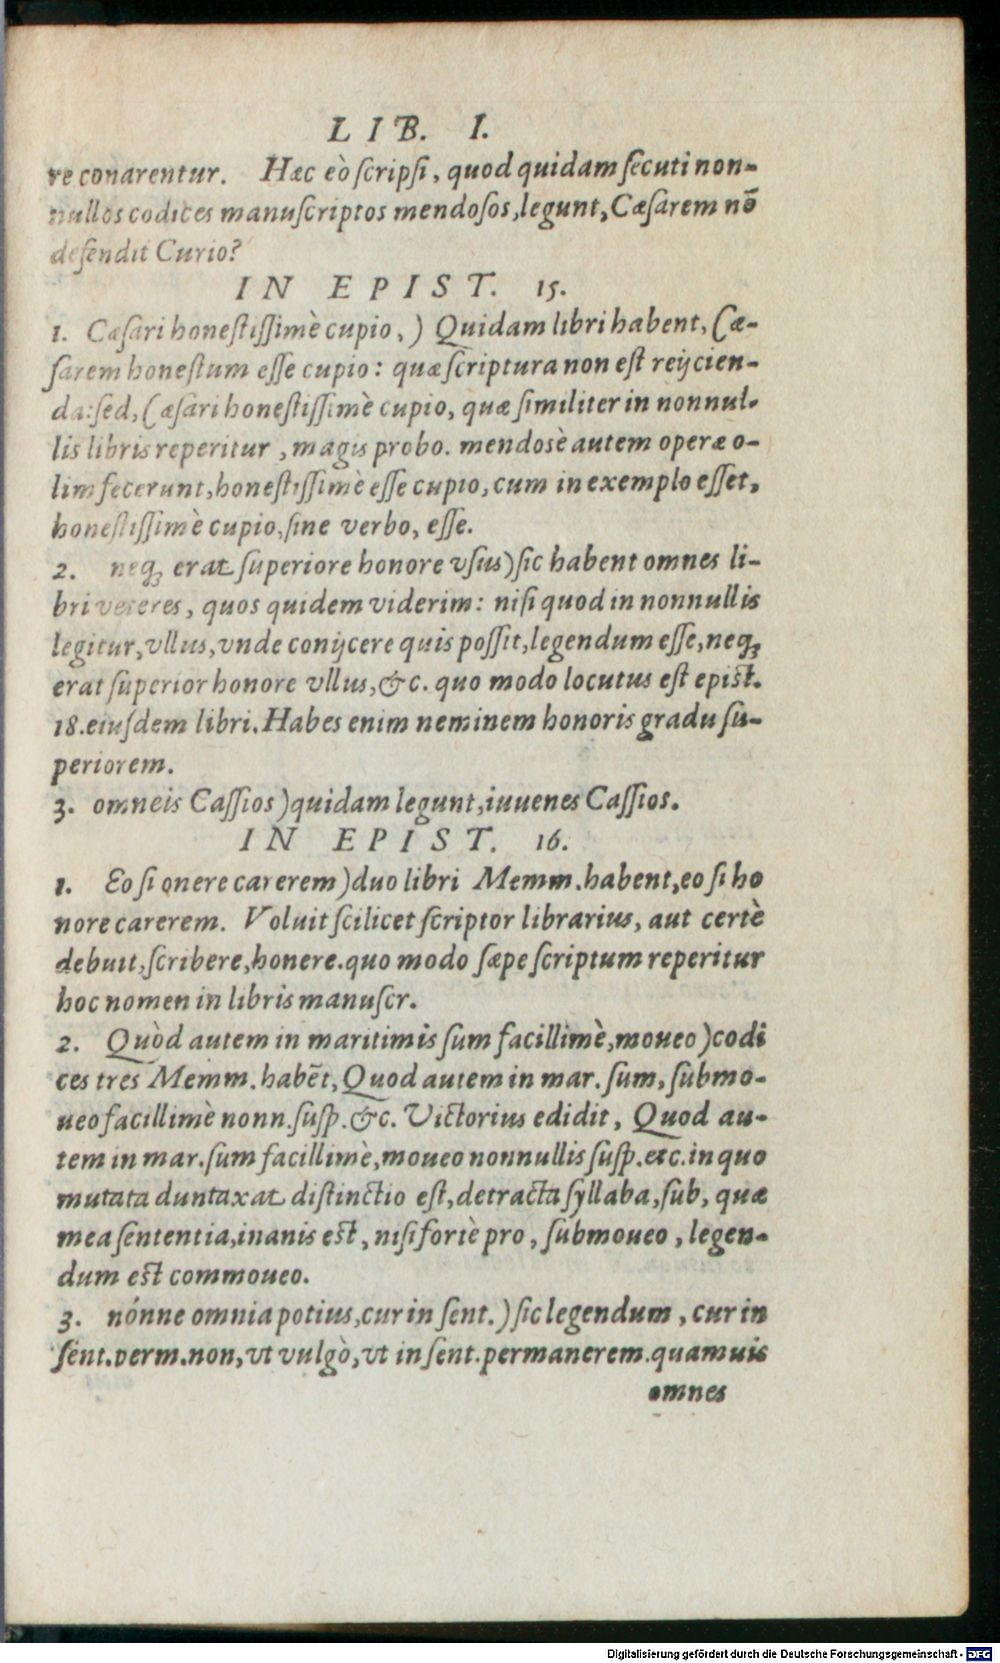 LIB. I.
re conarentur. Hæc eò scripsi, quod quidam secuti non-
nullos codices manuscriptos mendosos, legunt, Cæsarem nō
defendit Curio?
IN EPIST. 15.
1. Cæsari honestissimè cupio, ) Quidam libri habent, Cæ-
sarem honestum esse cupio: quæ scriptura non est reijcien-
da: sed, Cæsari honestissimè cupio, quæ similiter in nonnul-
lis libris reperitur, magis probo. mendosè autem operæ o-
lim fecerunt, honestissimè esse cupio, cum in exemplo esset,
honestissimè cupio, sine verbo, esse.
2. neq; erat superiore honore vsus) sic habent omnes li-
bri veteres, quos quidem viderim: nisi quod in nonnullis
legitur, vllus, vnde conijcere quis possit, legendum esse, neq;
erat superior honore vllus, &c. quo modo locutus est epist.
18. eiusdem libri. Habes enim neminem honoris gradu su-
periorem.
3. omneis Cassios) quidam legunt, iuuenes Cassios.
IN EPIST. 16.
1. Eo si onere carerem) duo libri Memm. habent, eo si ho
nore carerem. Voluit scilicet scriptor librarius, aut certè
debuit, scribere, honere. quo modo sæpe scriptum reperitur
hoc nomen in libris manuscr.
2. Quòd autem in maritimis sum facillimè, moueo) codi
ces tres Memm. habēt, Quod autem in mar. sum, submo-
ueo facillimè nonn. susp. &c. Victorius edidit, Quod au-
tem in mar. sum facillimè, moueo nonnullis susp. etc. in quo
mutata duntaxat distinctio est, detracta syllaba, sub, quæ
mea sententia, inanis est, nisi fortè pro, submoueo, legen-
dum est commoueo.
3. nónne omnia potius, cur in sent.) sic legendum, cur in
sent. perm. non, vt vulgò, vt in sent. permanerem. quamuis
omnes
Digitalisierung gefördert durch die Deutsche Forschungsgemeinschaft - DFG